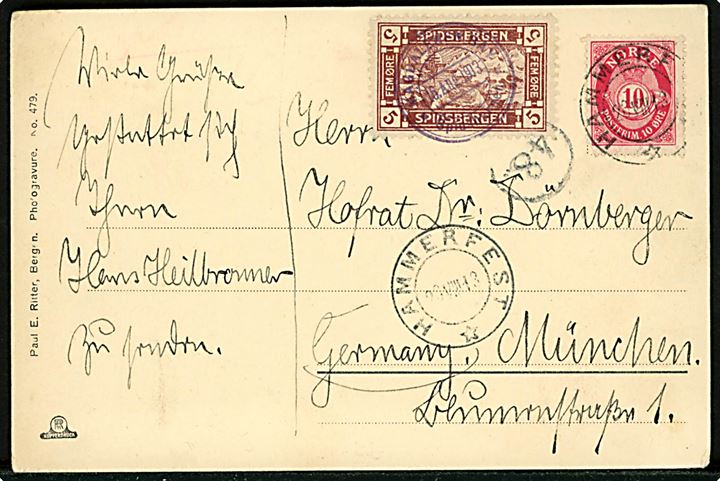 Paul E. Ritter, Bergen. Photogravure. No. 479.
KUPFERDRUCK
Viele Grüsse
gestattet sich
Ihnen
Hans Heilbronner
zu senden.
5 SPIDSBERGEN 5
FEM ØRE
FEM ØRE
5 SPIDSBERGEN 5
NORGE
10
POSTFRIM. 10 ØRE
HAMMERFEST
48
Herrn
Hofrat Dr: Dörnberger
HAMMERFEST
Germany, München.
Blumenstraße 1.